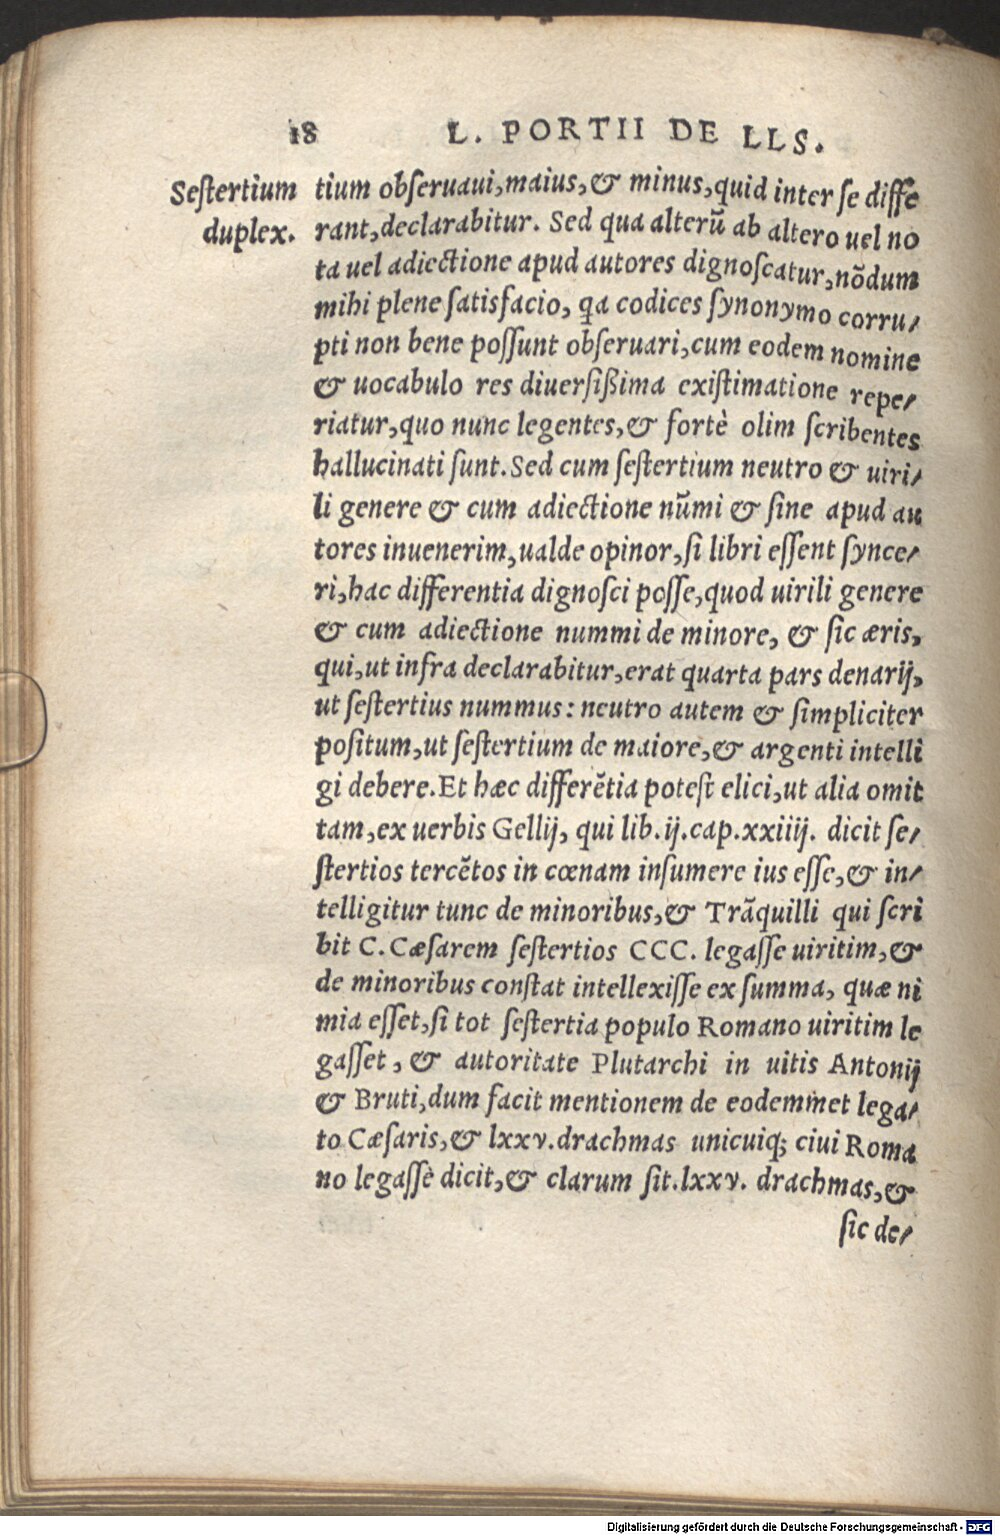 18 L. PORTII DE LLS.
Seſtertium
duplex.
tium obſeruaui, maius, & minus, quid inter ſe diffe
rant, declarabitur. Sed qua alterũ ab altero uel no
ta uel adiectione apud autores dignoſcatur, nõdum
mihi plene ſatisfacio, qa codices ſynonymo corru/
pti non bene poſſunt obſeruari, cum eodem nomine
& uocabulo res diuerſißima exiſtimatione repe/
riatur, quo nunc legentes, & fortè olim ſcribentes
hallucinati ſunt. Sed cum ſeſtertium neutro & uiri/
li genere & cum adiectione nũmi & ſine apud au
tores inuenerim, ualde opinor, ſi libri eſſent ſynce/
ri, hac differentia dignoſci poſſe, quod uirili genere
& cum adiectione nummi de minore, & ſic æris,
qui, ut infra declarabitur, erat quarta pars denarij,
ut ſeſtertius nummus: neutro autem & ſimpliciter
poſitum, ut ſeſtertium de maiore, & argenti intelli
gi debere. Et hæc differẽtia poteſt elici, ut alia omit
tam, ex uerbis Gellij, qui lib. ij. cap. xxiiij. dicit ſe/
ſtertios tercẽtos in cœnam inſumere ius eſſe, & in/
telligitur tunc de minoribus, & Trãquilli qui ſcri
bit C. Cæſarem ſeſtertios CCC. legaſſe uiritim, &
de minoribus conſtat intellexiſſe ex ſumma, quæ ni
mia eſſet, ſi tot ſeſtertia populo Romano uiritim le
gaſſet, & autoritate Plutarchi in uitis Antonij
& Bruti, dum facit mentionem de eodemmet lega/
to Cæſaris, & lxxv. drachmas unicuiq; ciui Roma
no legaſſè dicit, & clarum ſit. lxxv. drachmas, &
ſic de/
Digitalisierung gefördert durch die Deutsche Forschungsgemeinschaft - DFG